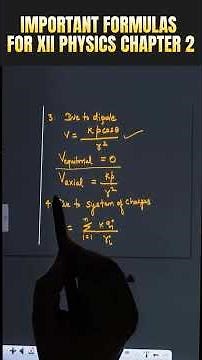 IMPORTANT FORMULAS
FOR XII PHYSICS CHAPTER 2
3. Due to dipole
V = KpCosθ / r²
Vequitorial = 0
Vaxial = Kp / r²
to system of charges
= n∑i=1 K qi / ri